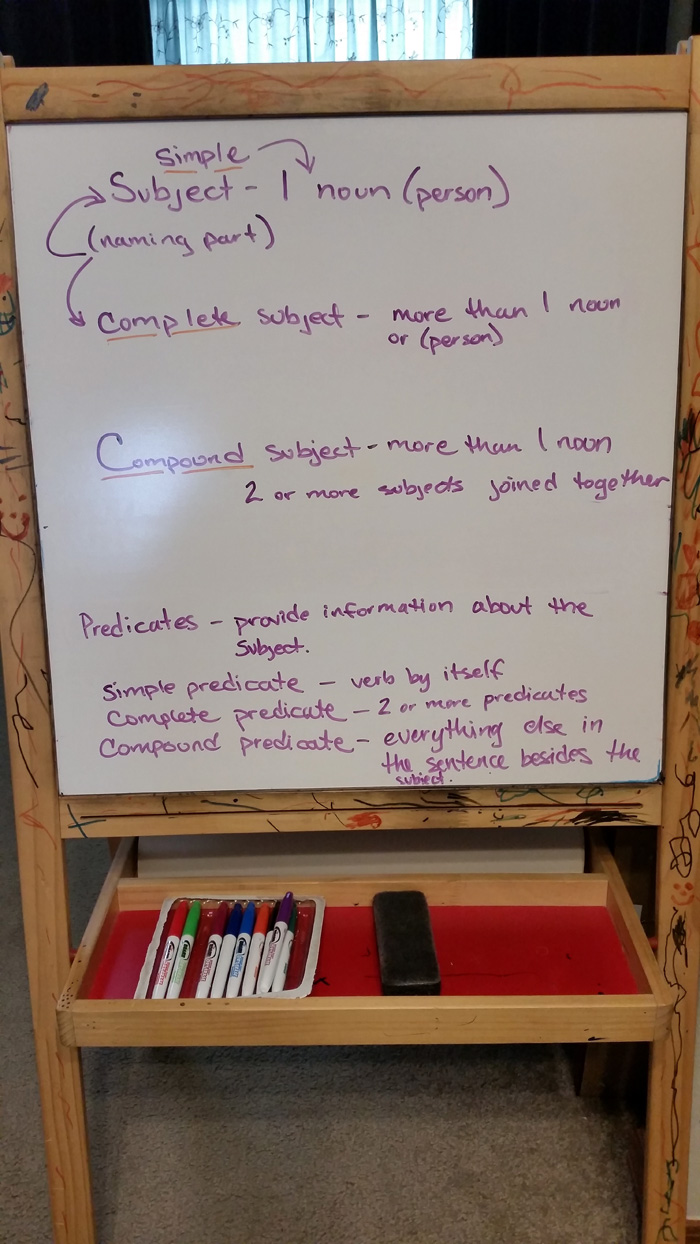 simple
Subject - 1 noun (person)
(naming part)
Complete subject - more than 1 noun
or (person)
Compound subject - more than 1 noun
2 or more subjects joined together
Predicates - provide information about the
Subject.
Simple predicate - verb by itself
Complete predicate - 2 or more predicates
Compound predicate - everything else in
the sentence besides the
subject.